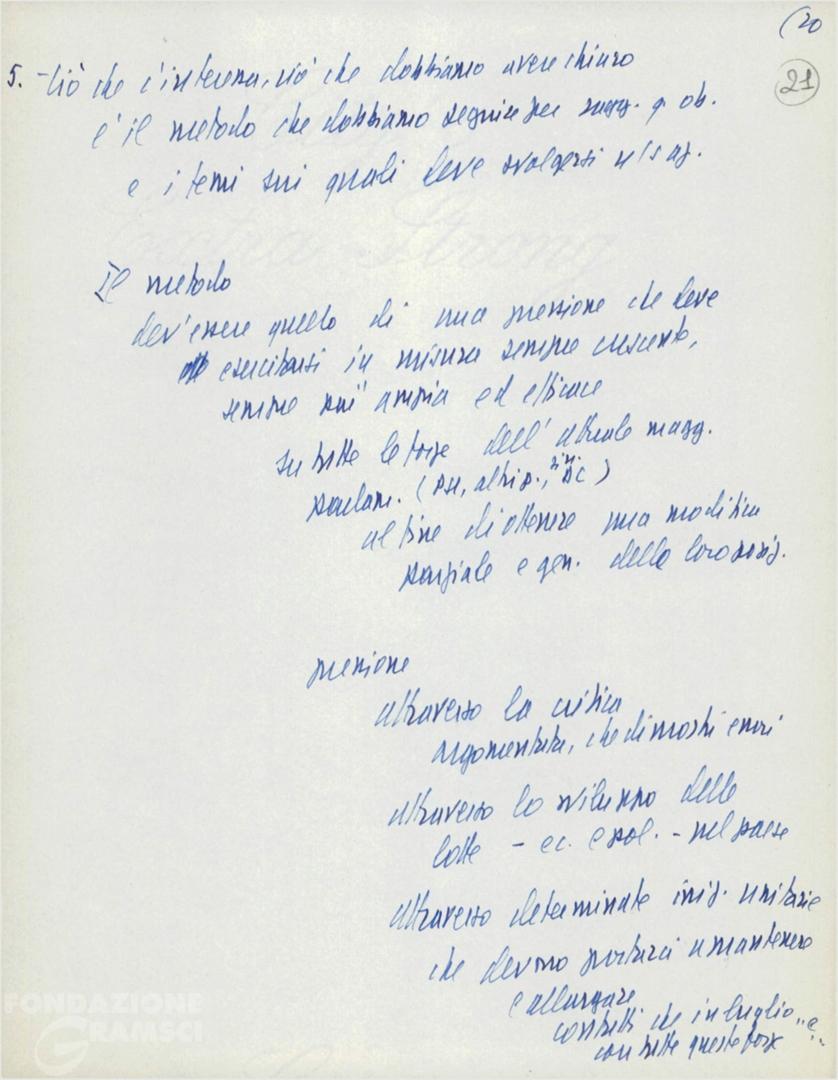 (20
21
5. - Ciò che c'interessa, ciò che dobbiamo avere chiaro
è il metodo che dobbiamo seguire per ragg. q. ob.
e i temi sui quali deve svolgersi n/s az.
Il metodo
dev'essere quello di una pressione che deve
esercitarsi in misura sempre crescente,
sempre più ampia ed efficace
su tutte le forze dell'attuale magg.
parlam. (PSU, altri p., DC)
al fine di ottenere una modifica
parziale e gen. della loro posiz.
pressione
attraverso la critica
argomentata, che dimostri errori
attraverso lo sviluppo delle
lotte - ec. e pol. - nel paese
attraverso determinate iniz. unitarie
che devono portarci a mantenere
e allargare
contatti che in luglio
con tutte queste forze
FONDAZIONE
GRAMSCI
Extra Strong